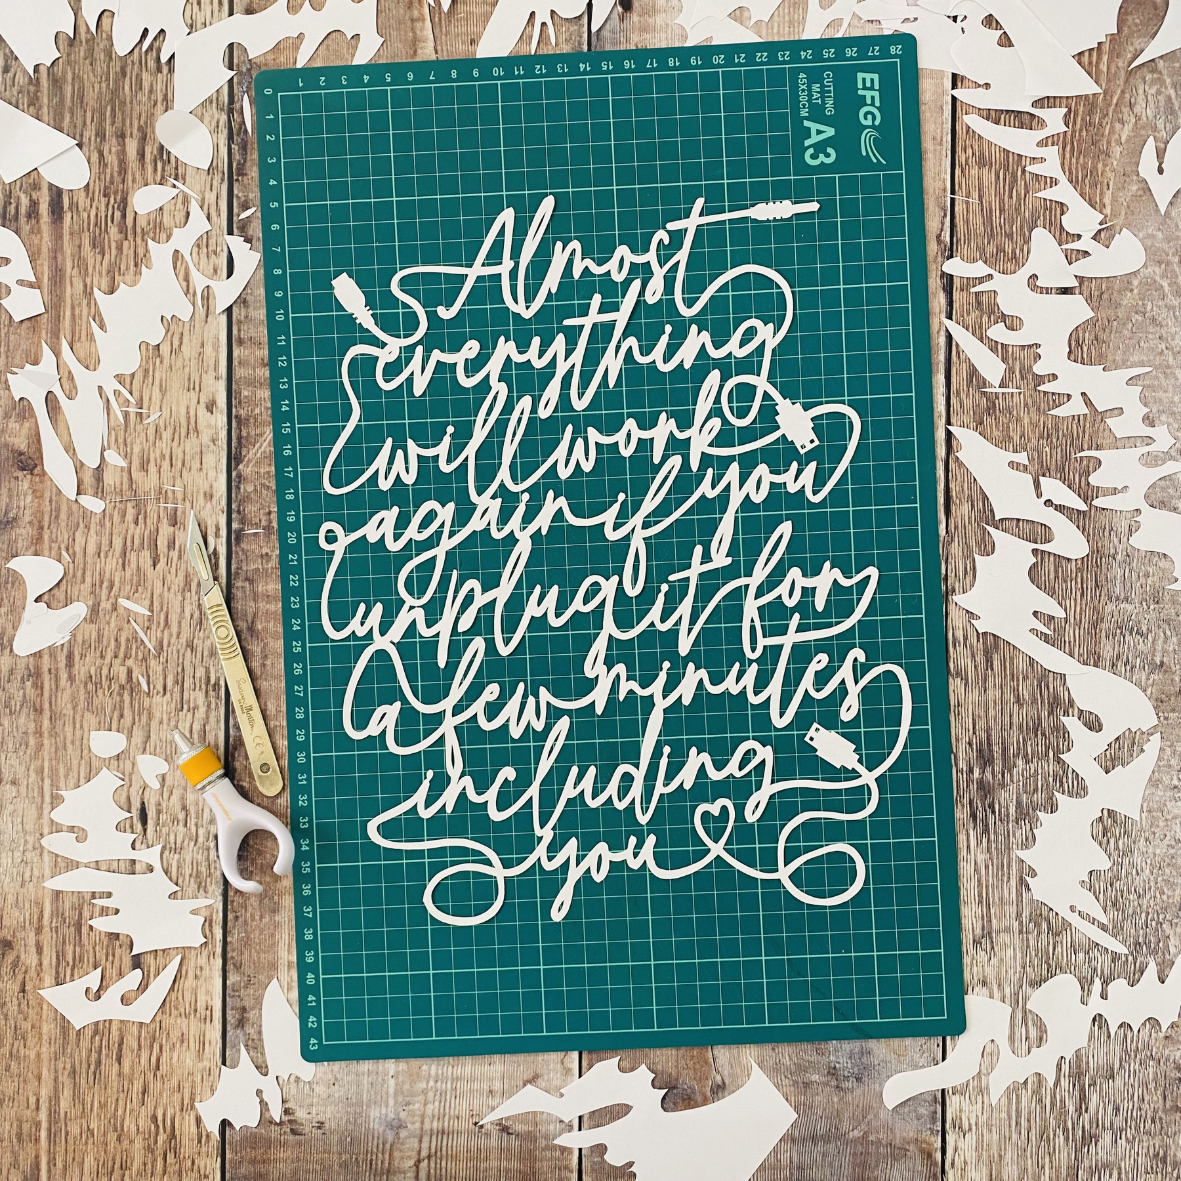 EFG
CUTTING
MAT
45X30CM
A3
0 1 2 3 4 5 6 7 8 9 10 11 12 13 14 15 16 17 18 19 20 21 22 23 24 25 26 27 28
1 2 3 4 5 6 7 8 9 10 11 12 13 14 15 16 17 18 19 20 21 22 23 24 25 26 27 28 29 30 31 32 33 34 35 36 37 38 39 40 41 42 43
Almost
everything
will work
again if you
unplug it for
a few minutes
including
you
Swann-Morton